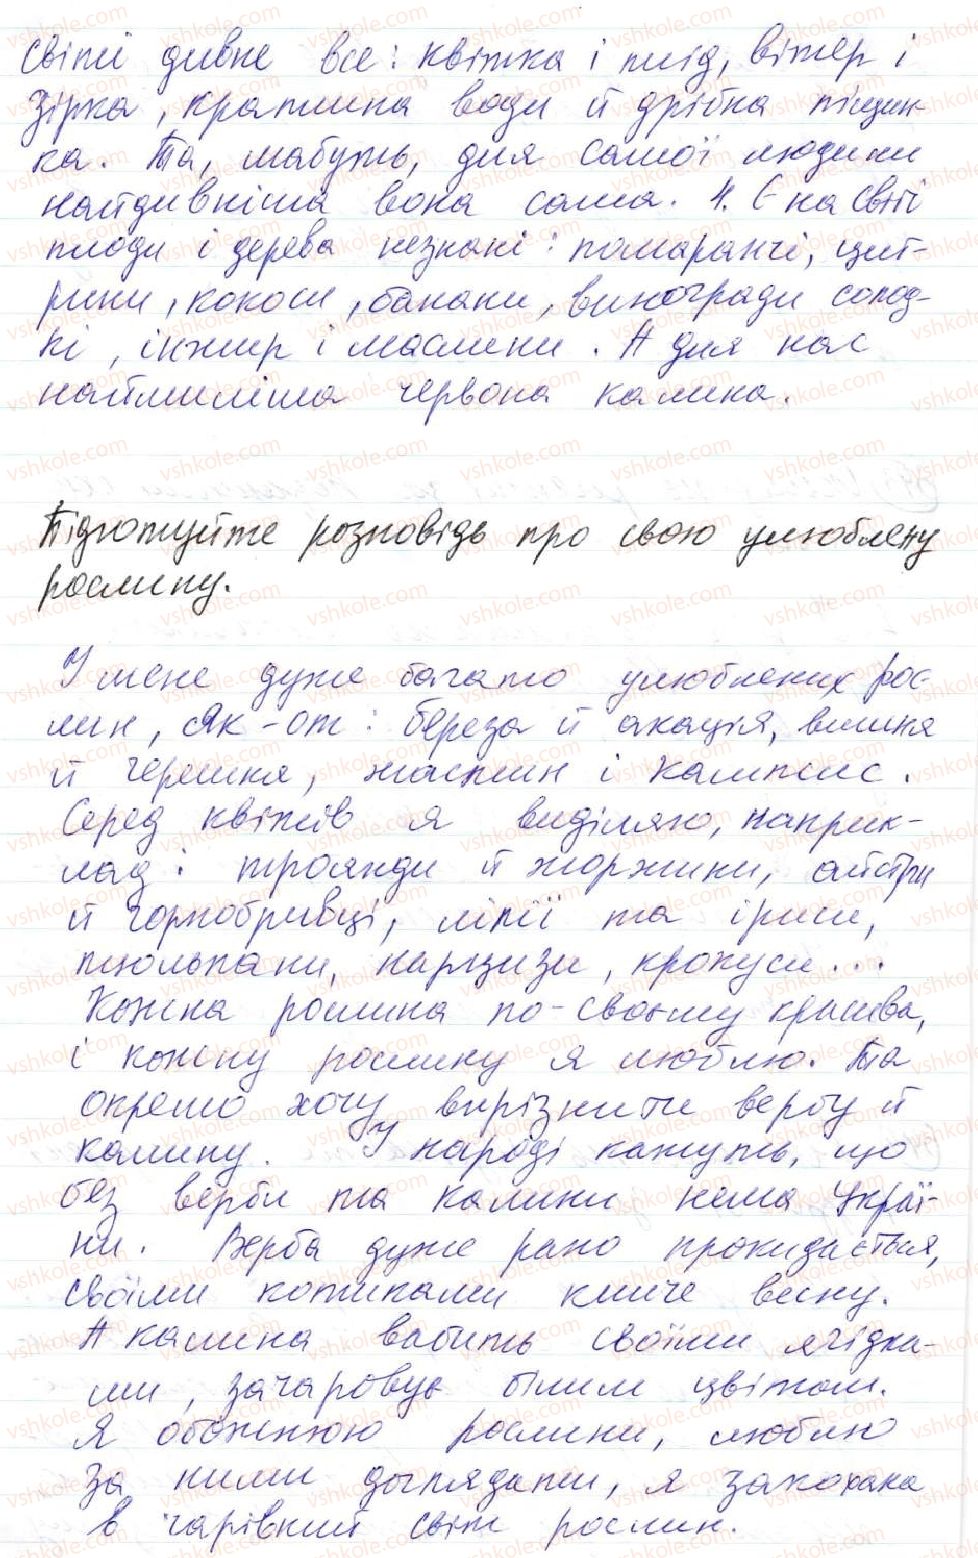 світі дивне все: квітка і плід, вітер і
зірка, краплина води й дрібна піщин-
ка. Та, мабуть, для самої людини
найдивніша вона сама. 4. Є на світі
плоди і дерева незнані: помаранчі, цит-
рини, кокоси, банани, виногради солод-
кі, інжир і маслини. А для нас
наймиліша червона калина.
Підготуйте розповідь про свою улюблену
рослину.
У мене дуже багато улюблених рос-
лин, як-от: береза й акація, вишня
й черешня, жасмин і кампсис.
Серед квітів я виділяю, наприк-
лад: троянди й жоржини, айстри
й чорнобривці, лілії та іриси,
тюльпани, нарцизи, крокуси...
Кожна рослина по-своєму красива,
і кожну рослину я люблю. Та
окремо хочу вирізнити вербу й
калину. У народі кажуть, що
без верби та калини нема Украї-
ни. Верба дуже рано прокидається,
своїми котиками кличе весну.
А калина вабить своїми ягідка-
ми, зачаровує білим цвітом.
Я обожнюю рослини, люблю
за ними доглядати, я закохана
в чарівний світ рослин.